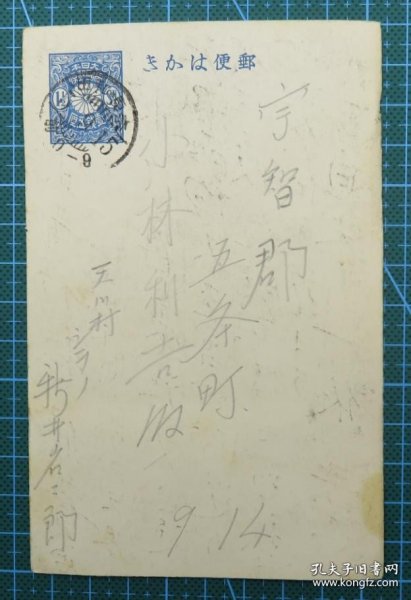 郵便はかき
宇智郡
五条町
小林利吉殿
天川村
新井岩二郎
9 14
孔夫子旧书网
book.kongfz.com